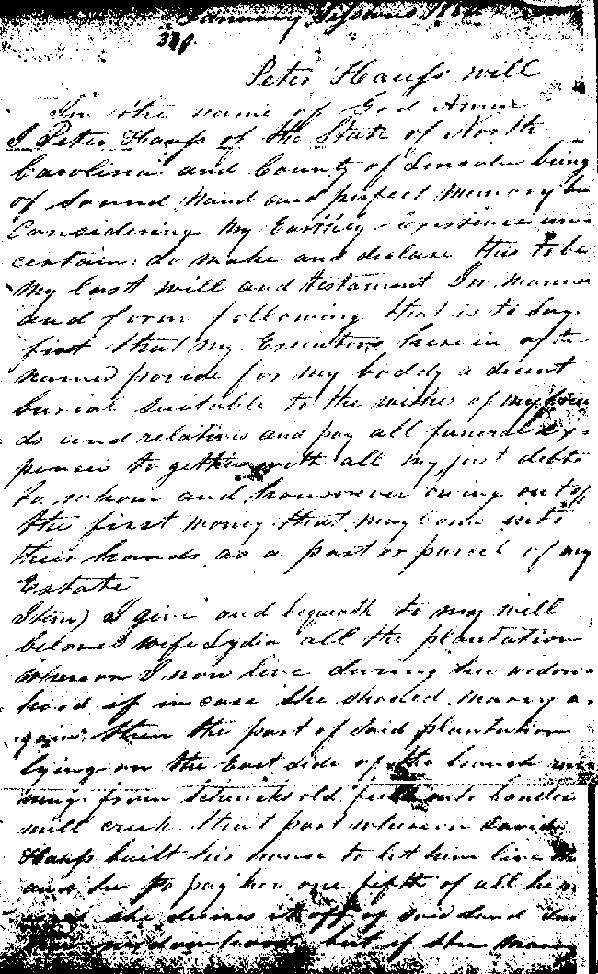 January Sessions
Peter Haufs will
In the name of God Amen
I Peter Haufs of the State of North
Carolina and County of Lincoln being
of Sound Mind and perfect Memory
Considering My Earthly Existence un
certain do make and declare this to be
My last will and testament In Manner
and form following that is to Say
first that my Executors herein afte
named provide for my boddy a decent
burial Suitable to the wishes of my frien
ds and relatives and pay all funeral Ex
pences to gether with all my just debts
to whom and howsoever owing out of
the first money that may Come into
their hands as a part or parcel of my
Estate
Item I give and bequeath to my well
beloved wife Lydia all the plantation
whereon I now live during her widow
hood if in case She should marry a
gain then the part of Said plantation
lying on the East Side of the branch run
ning from old field into
will creek that part whereon David
Haufs built his house to let him live
and he to pay her one fifth of all
she desires it off of Said land
widowhood but if She marry